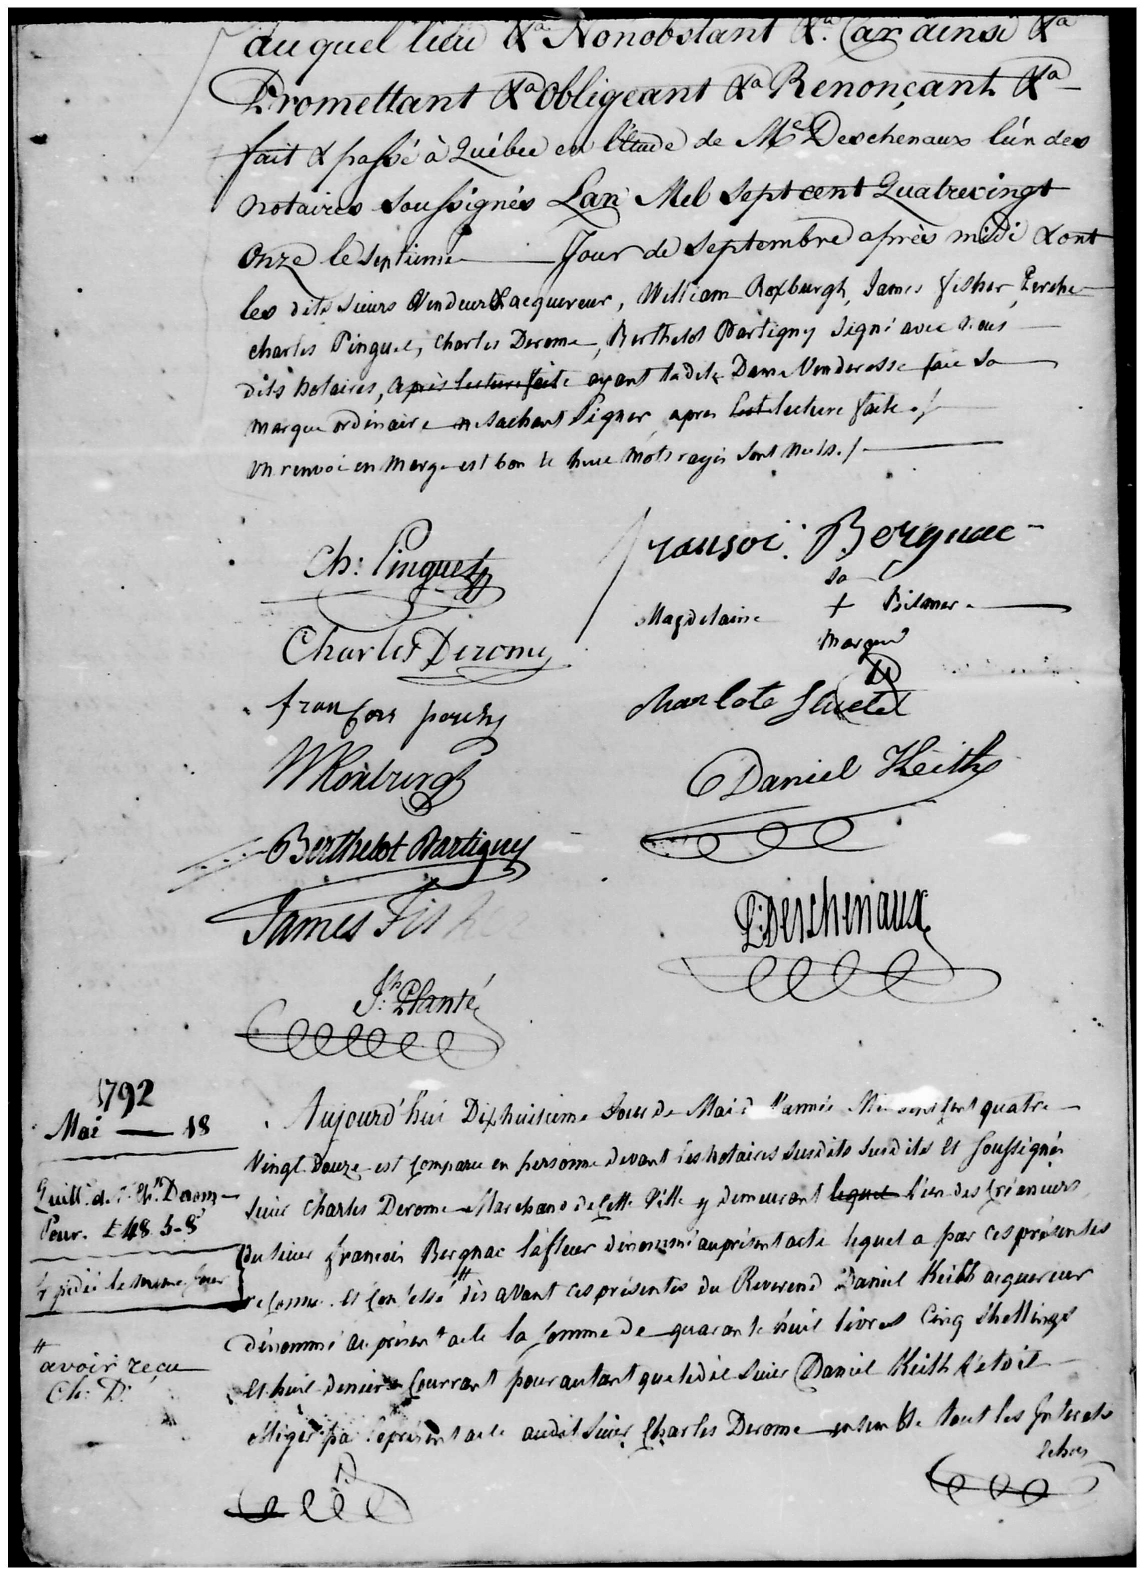 auquel lieu &a Nonobstant &a. Car ainsi &a
Promettant &a Obligeant &a Renonçant &a
fait & passé à Québec en l'étude de Me Deschenaux lún des
notaires soussignés Lan Mil sept cent Quatrevingt
Onze le septieme Jour de septembre après midi & ont
les dits sieurs Vendeur & acquereur, William Roxburgh, James Fisher, Perche
charles Pinguet, Charles Derome, Berthelot Dartigny signé avec nous
dits notaires, après lecture faite ayant ladite Dame Venderesse fait sa
marque ordinaire ne sachant signer, apres lecture faite ./
Un renvoi en marge est bon & huit mots rayés sont nuls ./
Ch: Pinguet
fransoi: Bergnac
sa
Magdelaine + Bitner
marque
Charles Derome
françois perche
charlote
WRoxburgh
Daniel Keith
Berthelot Dartigny
James Fisher
P:L: Deschenaux
Jh: Planté
1792
Mai — 18
Quitt. de Sr. Ch. Derome
Pour. £48. 5-8
Expédié le meme jour
# avoir reçu
Ch: D:
Aujourd'hui Dixhuitieme Jour de Mai d l'année Mil sept cent quatre
Vingt Douze est comparu en personne devant les notaires susdits susdits et soussignés
sieur Charles Derome Marchand de cette Ville y demeurant lequel l'un des créanciers
du sieur françois Bergnac lafleur dénommé au présent acte lequel a par ces présentes
reconnu et confessé # dès avant ces présentes du Reverend Daniel Keith acquereur
dénommé au présent acte la somme de quarante huit livres Cinq shellings
et huit deniers Courrant pour autant que ledit sieur Daniel Keith s'etoit
obliger par le présent acte audit sieur Charles Derome ensemble tout les Interets